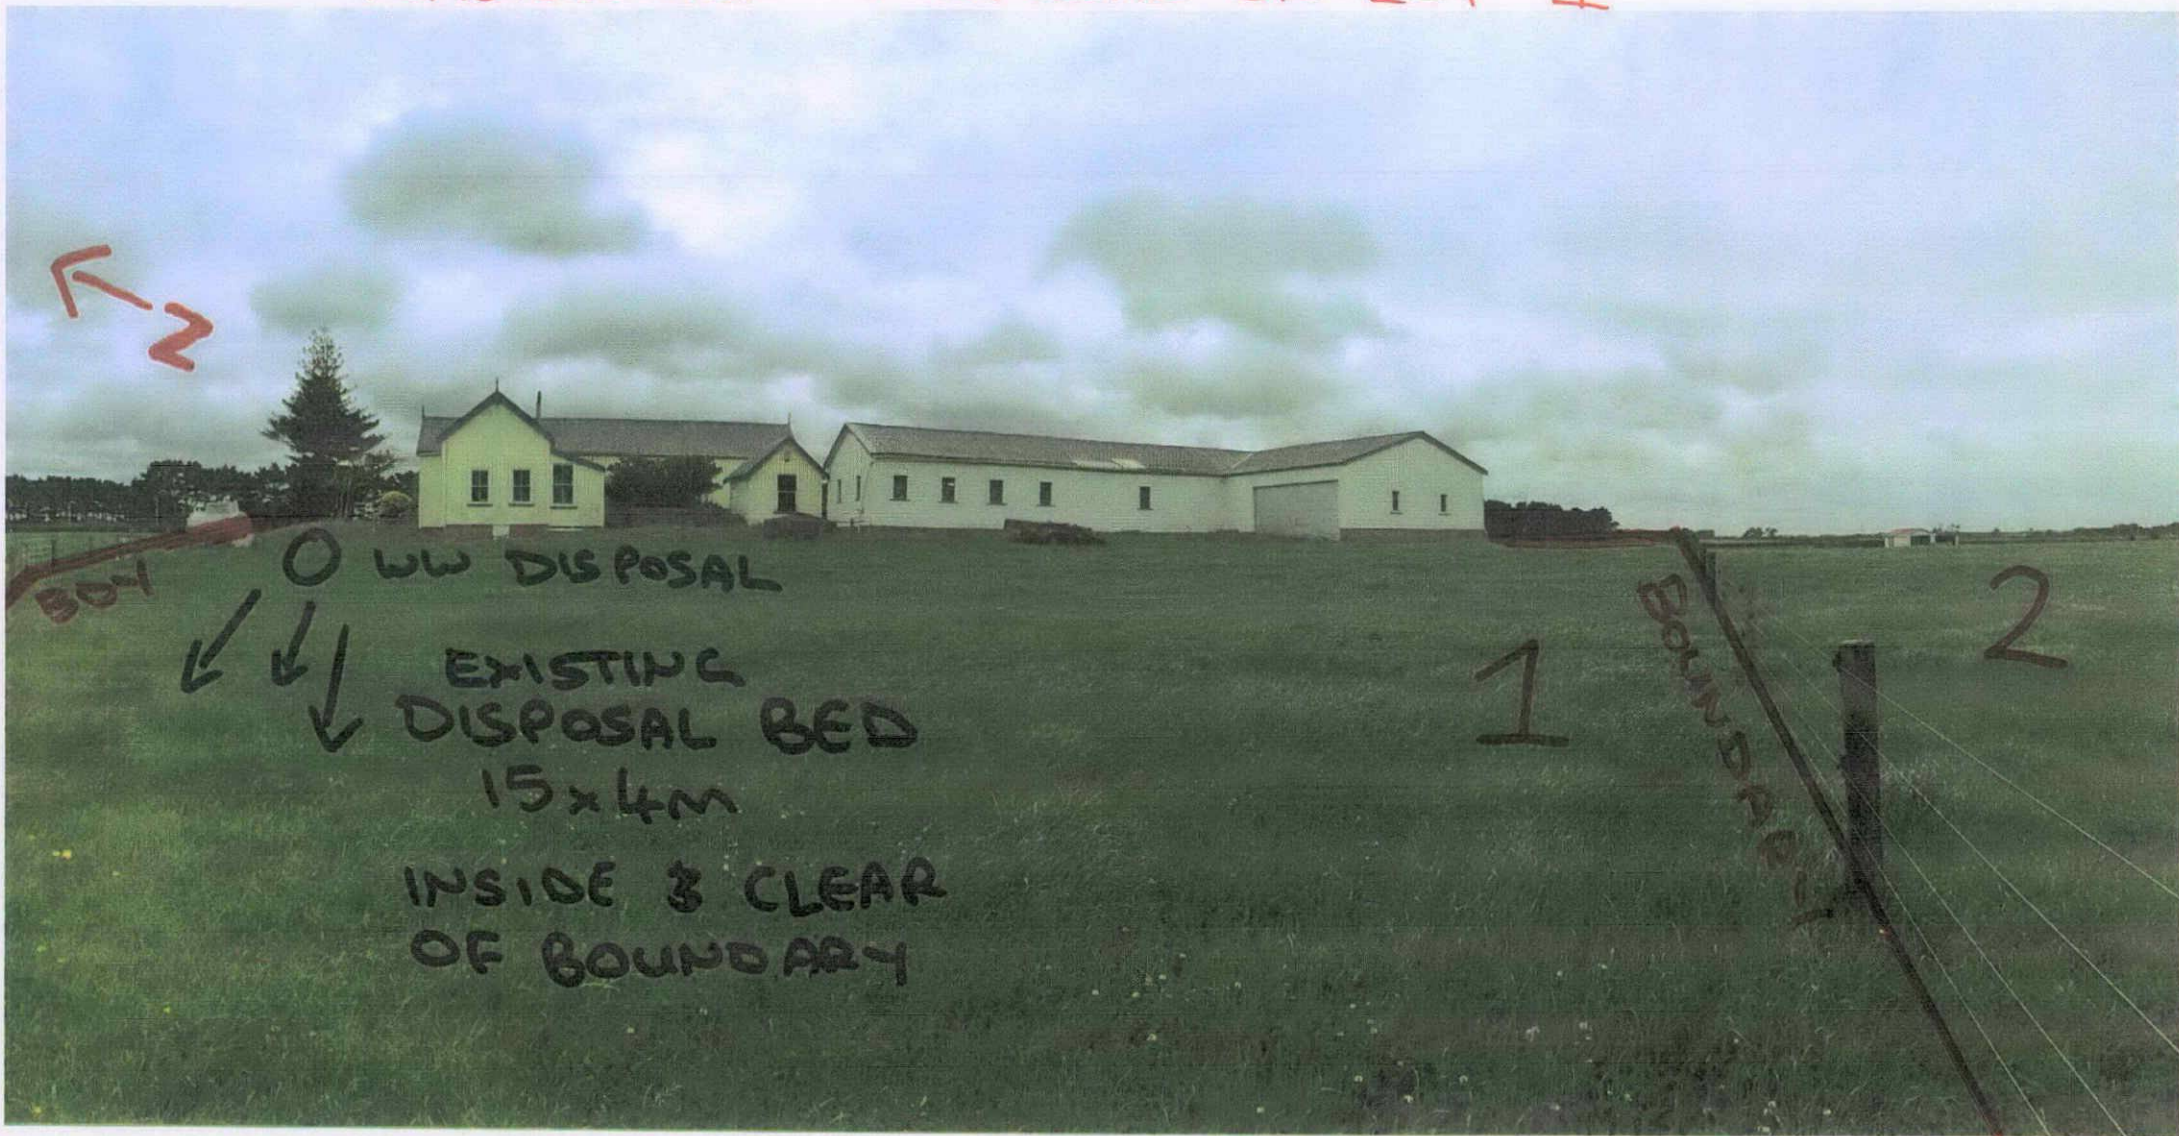 N
BDY
O WW DISPOSAL
EXISTING
DISPOSAL BED
15x4m
INSIDE & CLEAR
OF BOUNDARY
1
BOUNDARY
2